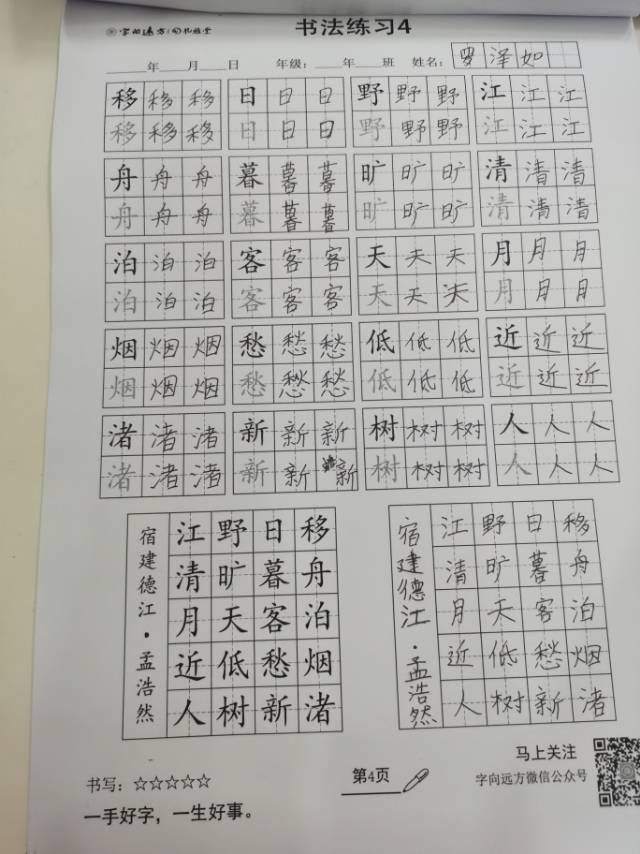 字向远方
书法练习4
____年____月____日 年级:____年____班 姓名: 罗泽如
移移移 日日日 野野野 江江江
移移移 日日日 野野野 江江江
舟舟舟 暮暮暮 旷旷旷 清清清
舟舟舟 暮暮暮 旷旷旷 清清清
泊泊泊 客客客 天天天 月月月
泊泊泊 客客客 天天天 月月月
烟烟烟 愁愁愁 低低低 近近近
烟烟烟 愁愁愁 低低低 近近近
渚渚渚 新新新 树树树 人人人
渚渚渚 新新新 树树树 人人人
宿建德江·孟浩然
移舟泊烟渚
日暮客愁新
野旷天低树
江清月近人
宿建德江·孟浩然
移舟泊烟渚
日暮客愁新
野旷天低树
江清月近人
书写:☆☆☆☆☆
一手好字,一生好事。
第4页
马上关注
字向远方微信公众号